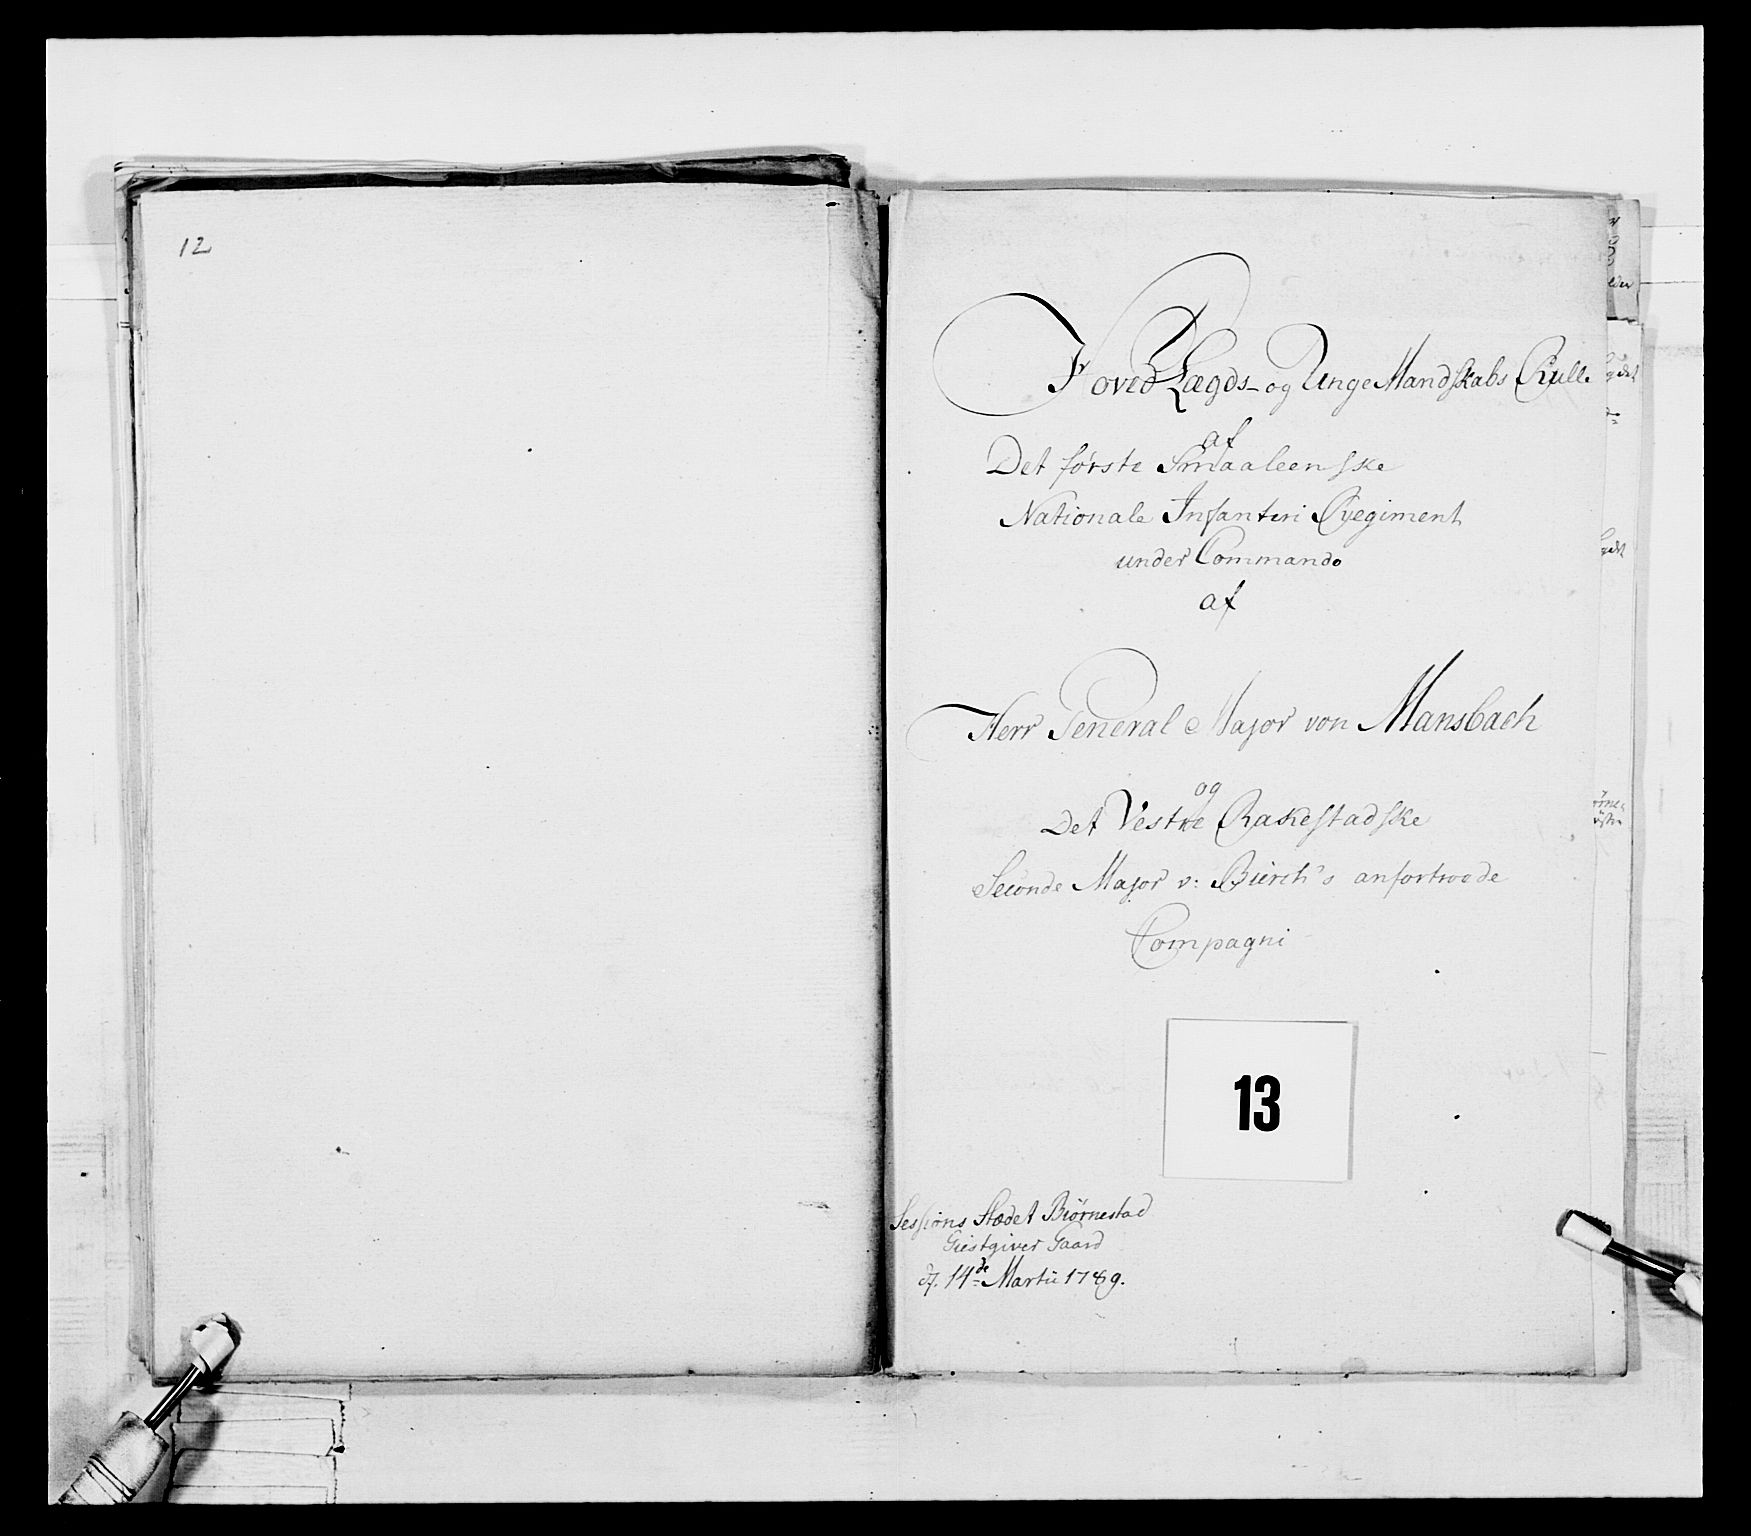 12
Hoved Lægds- og Unge Mandskabs Rulle
af
Det første Smaaleenske
Nationale Infanteri Regiment
under Commando
af
Herr General Major von Mansbach
og
Det Vestre Rakestadske
Seconde Major v: Bierch's anfortroede
Compagni
13
Sessions Stædet Biörnestad
Giestgiver Gaard
d. 14de Martii 1789.